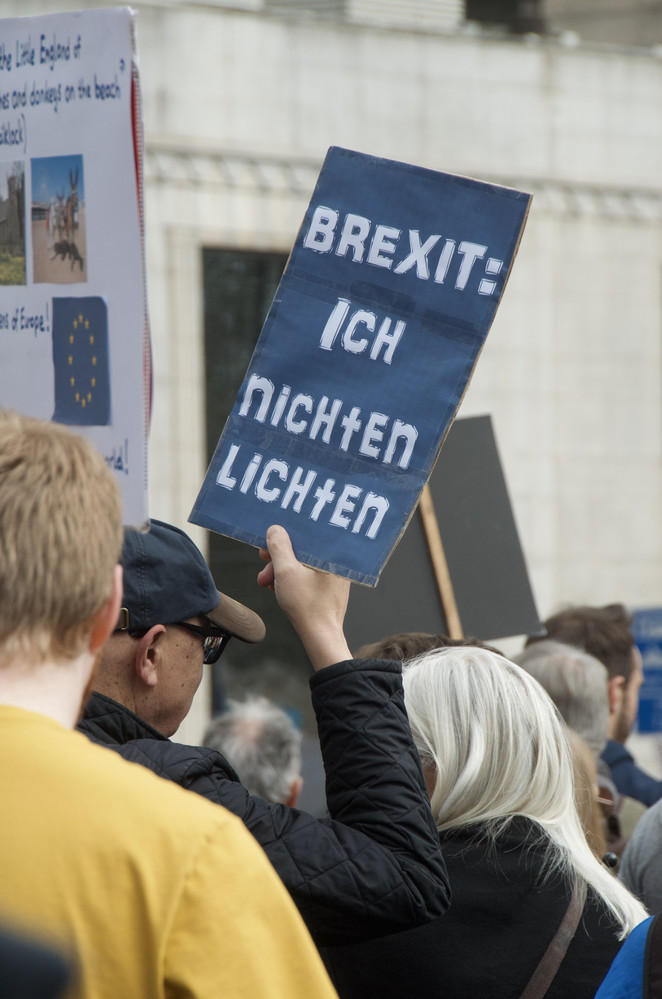 the Little England of
and donkeys on the beach"
of Europe!
BREXIT:
ICH
NICHTEN
LICHTEN